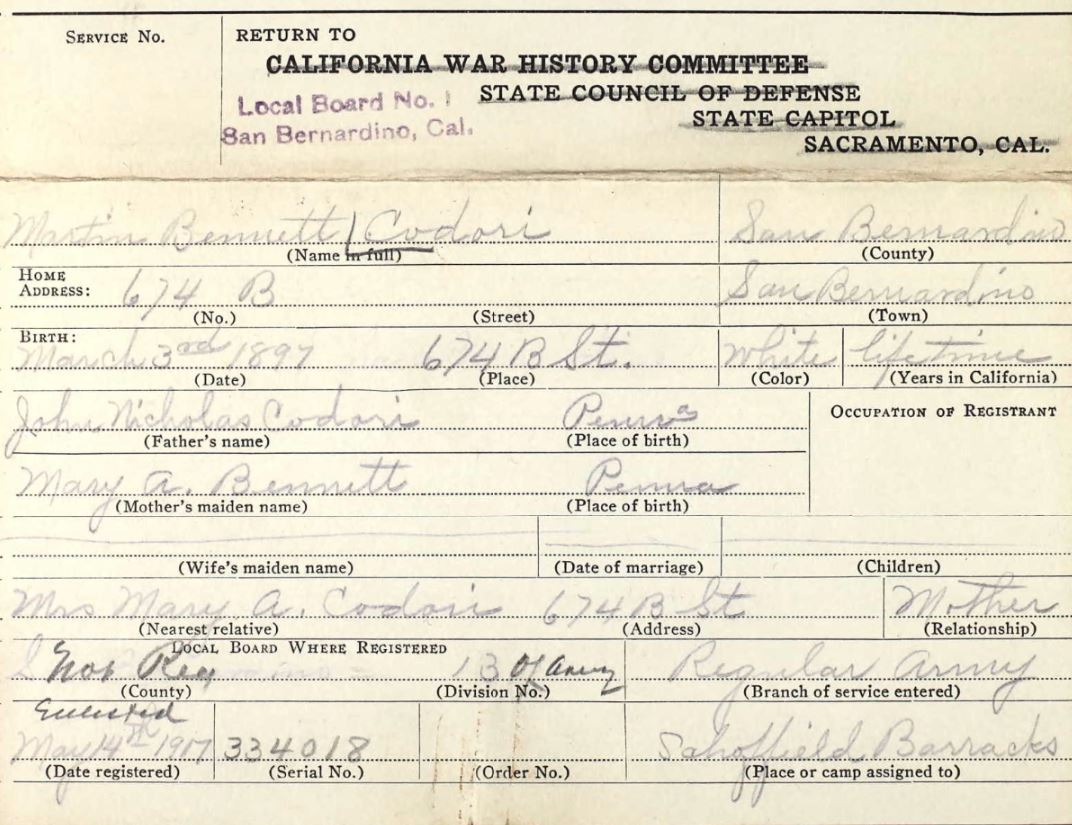 SERVICE NO.
RETURN TO
CALIFORNIA WAR HISTORY COMMITTEE
STATE COUNCIL OF DEFENSE
STATE CAPITOL
SACRAMENTO, CAL.
Local Board No. 1
San Bernardino, Cal.
Martin Bennett Codori San Bernardino
(Name in full) (County)
HOME
ADDRESS: 674 B San Bernardino
(No.) (Street) (Town)
BIRTH:
March 3rd 1897 674 B St. White lifetime
(Date) (Place) (Color) (Years in California)
John Nicholas Codori Penna OCCUPATION OF REGISTRANT
(Father's name) (Place of birth)
Mary A. Bennett Penna
(Mother's maiden name) (Place of birth)
(Wife's maiden name) (Date of marriage) (Children)
Mrs Mary A. Codori 674 B St Mother
(Nearest relative) (Address) (Relationship)
LOCAL BOARD WHERE REGISTERED
Not Reg 13 Army Regular Army
(County) (Division No.) (Branch of service entered)
Enlisted
May 14th 1917 334018 Schoffield Barracks
(Date registered) (Serial No.) (Order No.) (Place or camp assigned to)